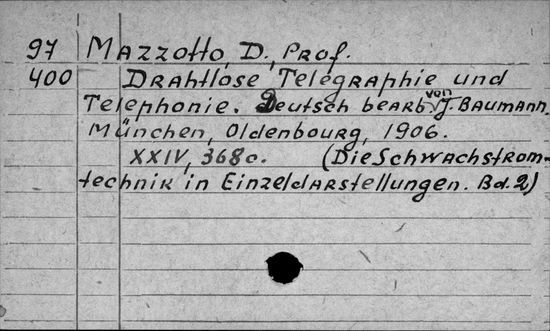 97 Mazzotto, D., Prof.
400 Drahtlose Telegraphie und
Telephonie. Deutsch bearb. von J. Baumann.
München, Oldenbourg, 1906.
XXIV, 368 c. (Die Schwachstrom-
technik in Einzeldarstellungen. Bd. 2)